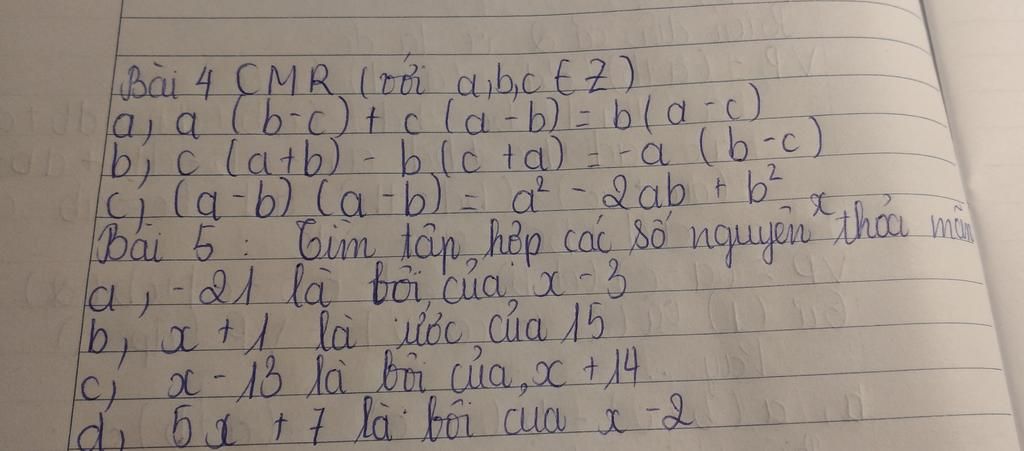 Bài 4 CMR (với a,b,c ∈ Z)
a, a (b-c) + c (a-b) = b(a-c)
b, c (a+b) - b (c+a) = -a (b-c)
c, (a-b) (a-b) = a² - 2ab + b²
Bài 5 : Tìm tập hợp các số nguyên x thỏa mãn
a, -21 là bội của x - 3
b, x + 1 là ước của 15
c, x - 13 là bội của x + 14
d, 5x + 7 là bội của x - 2